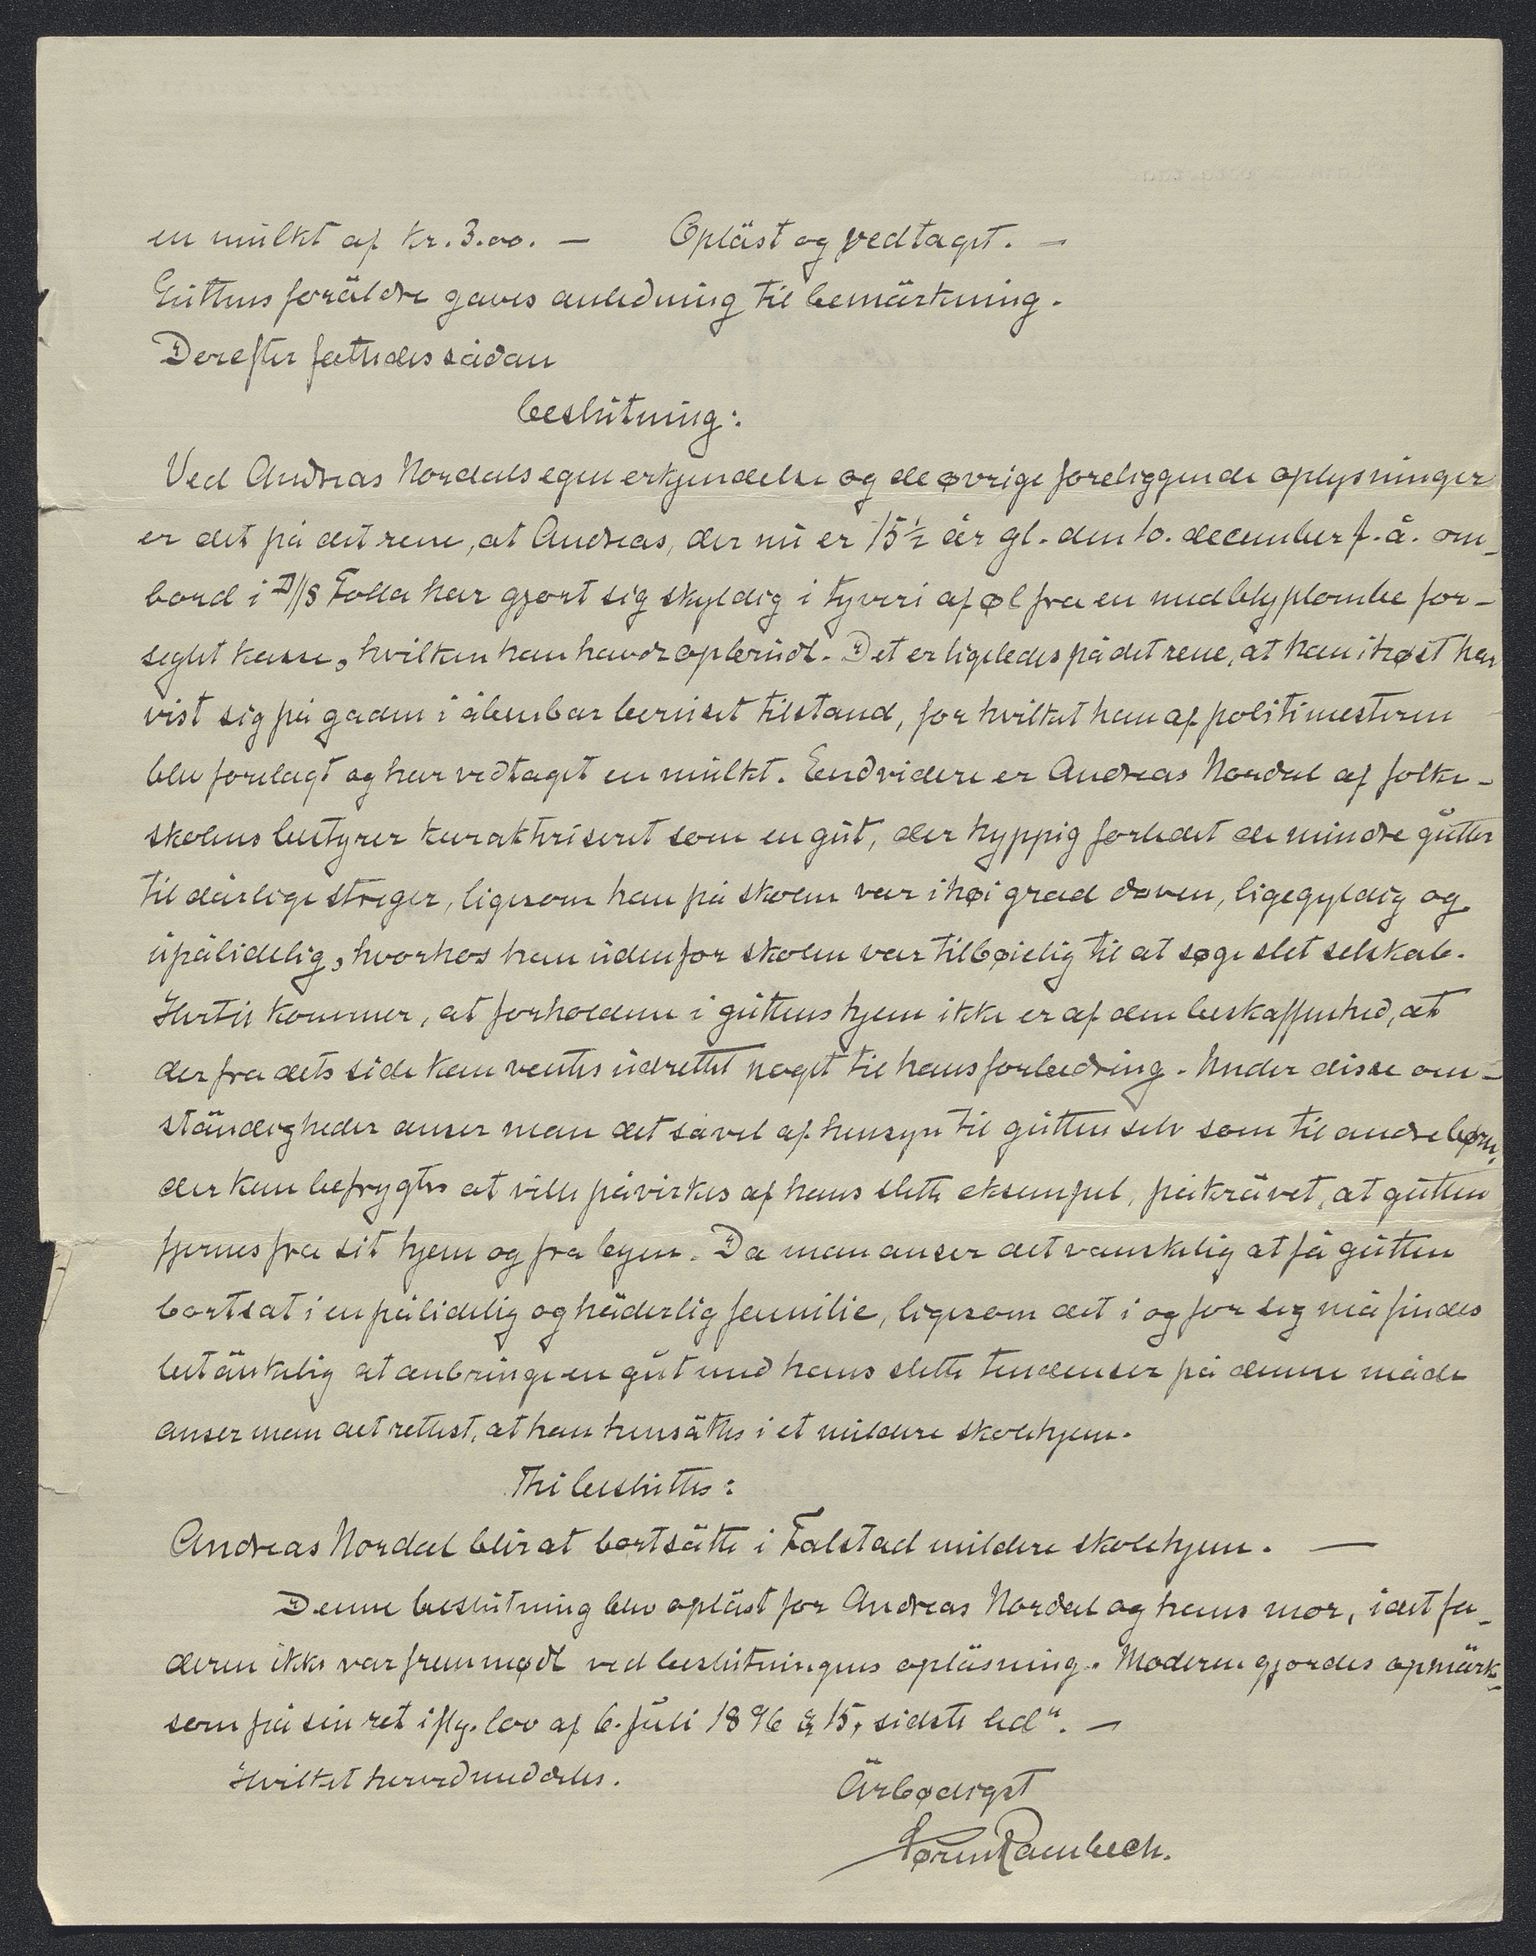 en mulkt af kr. 3.00. — Opläst og vedtaget. —
Guttens foräldre gaves anledning til bemärkning.
Derefter fattedes sådan
beslutning:
Ved Andreas Nordals egen erkjendelse og de øvrige foreliggende oplysninger
er det på det rene, at Andreas, der nu er 15½ år gl. den 10. december f. å. om-
bord i D/S Folla har gjort sig skyldig i tyveri af øl fra en med blyplombe for-
seglet kasse, hvilken han havde opbrudt. Det er ligeledes på det rene, at han i høst har
vist sig på gaden i åbenbar beruset tilstand, for hvilket han af politimesteren
blev forelagt og har vedtaget en mulkt. Endvidere er Andreas Nordal af folke-
skolens bestyrer karakteriseret som en gut, der hyppig forledet de mindre gutter
til dårlige streger, ligesom han på skolen var i høi grad doven, ligegyldig og
upålidelig, hvorhos han udenfor skolen var tilbøielig til at søge slet selskab.
Hertil kommer, at forholdene i guttens hjem ikke er af den beskaffenhed, at
der fra dets side kan ventes udrettet noget til hans forbedring. Under disse om-
ständigheder anser man det såvel af hensyn til gutten selv som til andre børn,
der kan befrygtes at ville påvirkes af hans slette eksempel, påkrävet, at gutten
fjernes fra sit hjem og fra byen. Da man anser det vanskelig at få gutten
bortsat i en pålidelig og häderlig familie, ligesom det i og for sig må findes
betänkelig at anbringe en gut med hans slette tendenser på denne måde
anser man det rettest, at han hensättes i et mildere skolehjem.
Thi besluttes:
Andreas Nordal blir at bortsätte i Falstad mildere skolehjem. —
Denne beslutning blev opläst for Andreas Nordal og hans mor, idet fa-
deren ikke var fremmødt ved beslutningens opläsning. Moderen gjordes opmärk-
som på sin ret ifly. lov af 6. juli 1896 § 15, sidste led". —
Hvilket herved meddeles.
Ärbødigst
Søren Rambech.